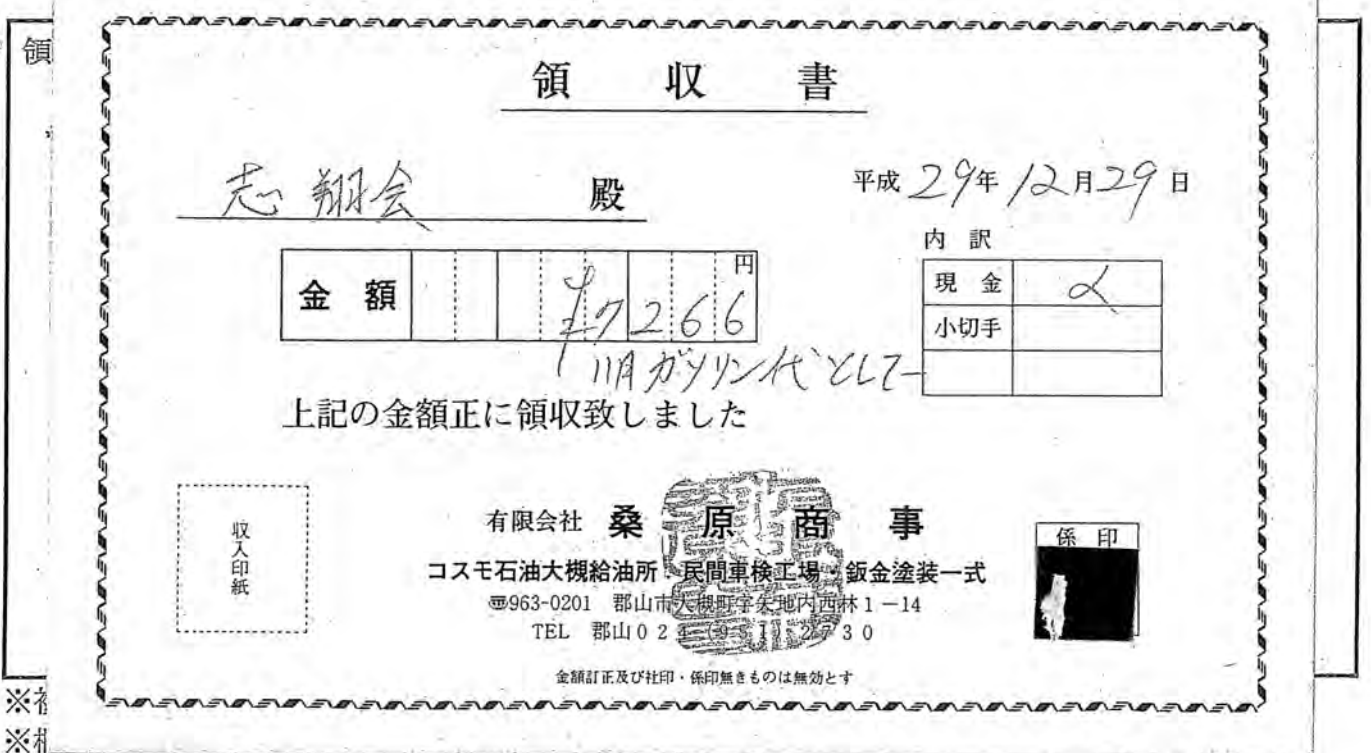 領
領収書
志翔会 殿
平成29年12月29日
内訳
金額 ¥7266円
現金
小切手
11月ガソリン代として
上記の金額正に領収致しました
収入印紙
有限会社 桑原商事
コスモ石油大槻給油所・民間車検工場・鈑金塗装一式
〒963-0201 郡山市大槻町字矢地内西林1-14
TEL 郡山024
2730
係印
金額訂正及び社印・係印無きものは無効とす
※
※